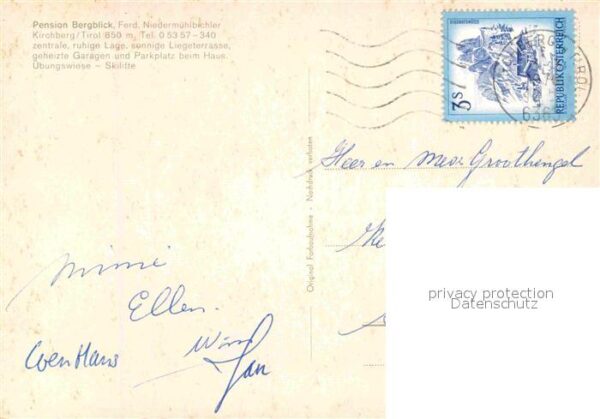 Pension Bergblick, Ferd. Niedermühlbichler
Kirchberg/Tirol 850 m, Tel. 0 53 57 – 340
zentrale, ruhige Lage, sonnige Liegeterrasse,
geheizte Garagen und Parkplatz beim Haus.
Übungswiese – Skilifte
3 S
REPUBLIK ÖSTERREICH
Original Farbaufnahme - Nachdruck verboten
Heer en Mevr Groothengel
privacy protection
Datenschutz
Minie
Ellen.
Wim
Coen Hans
Jan